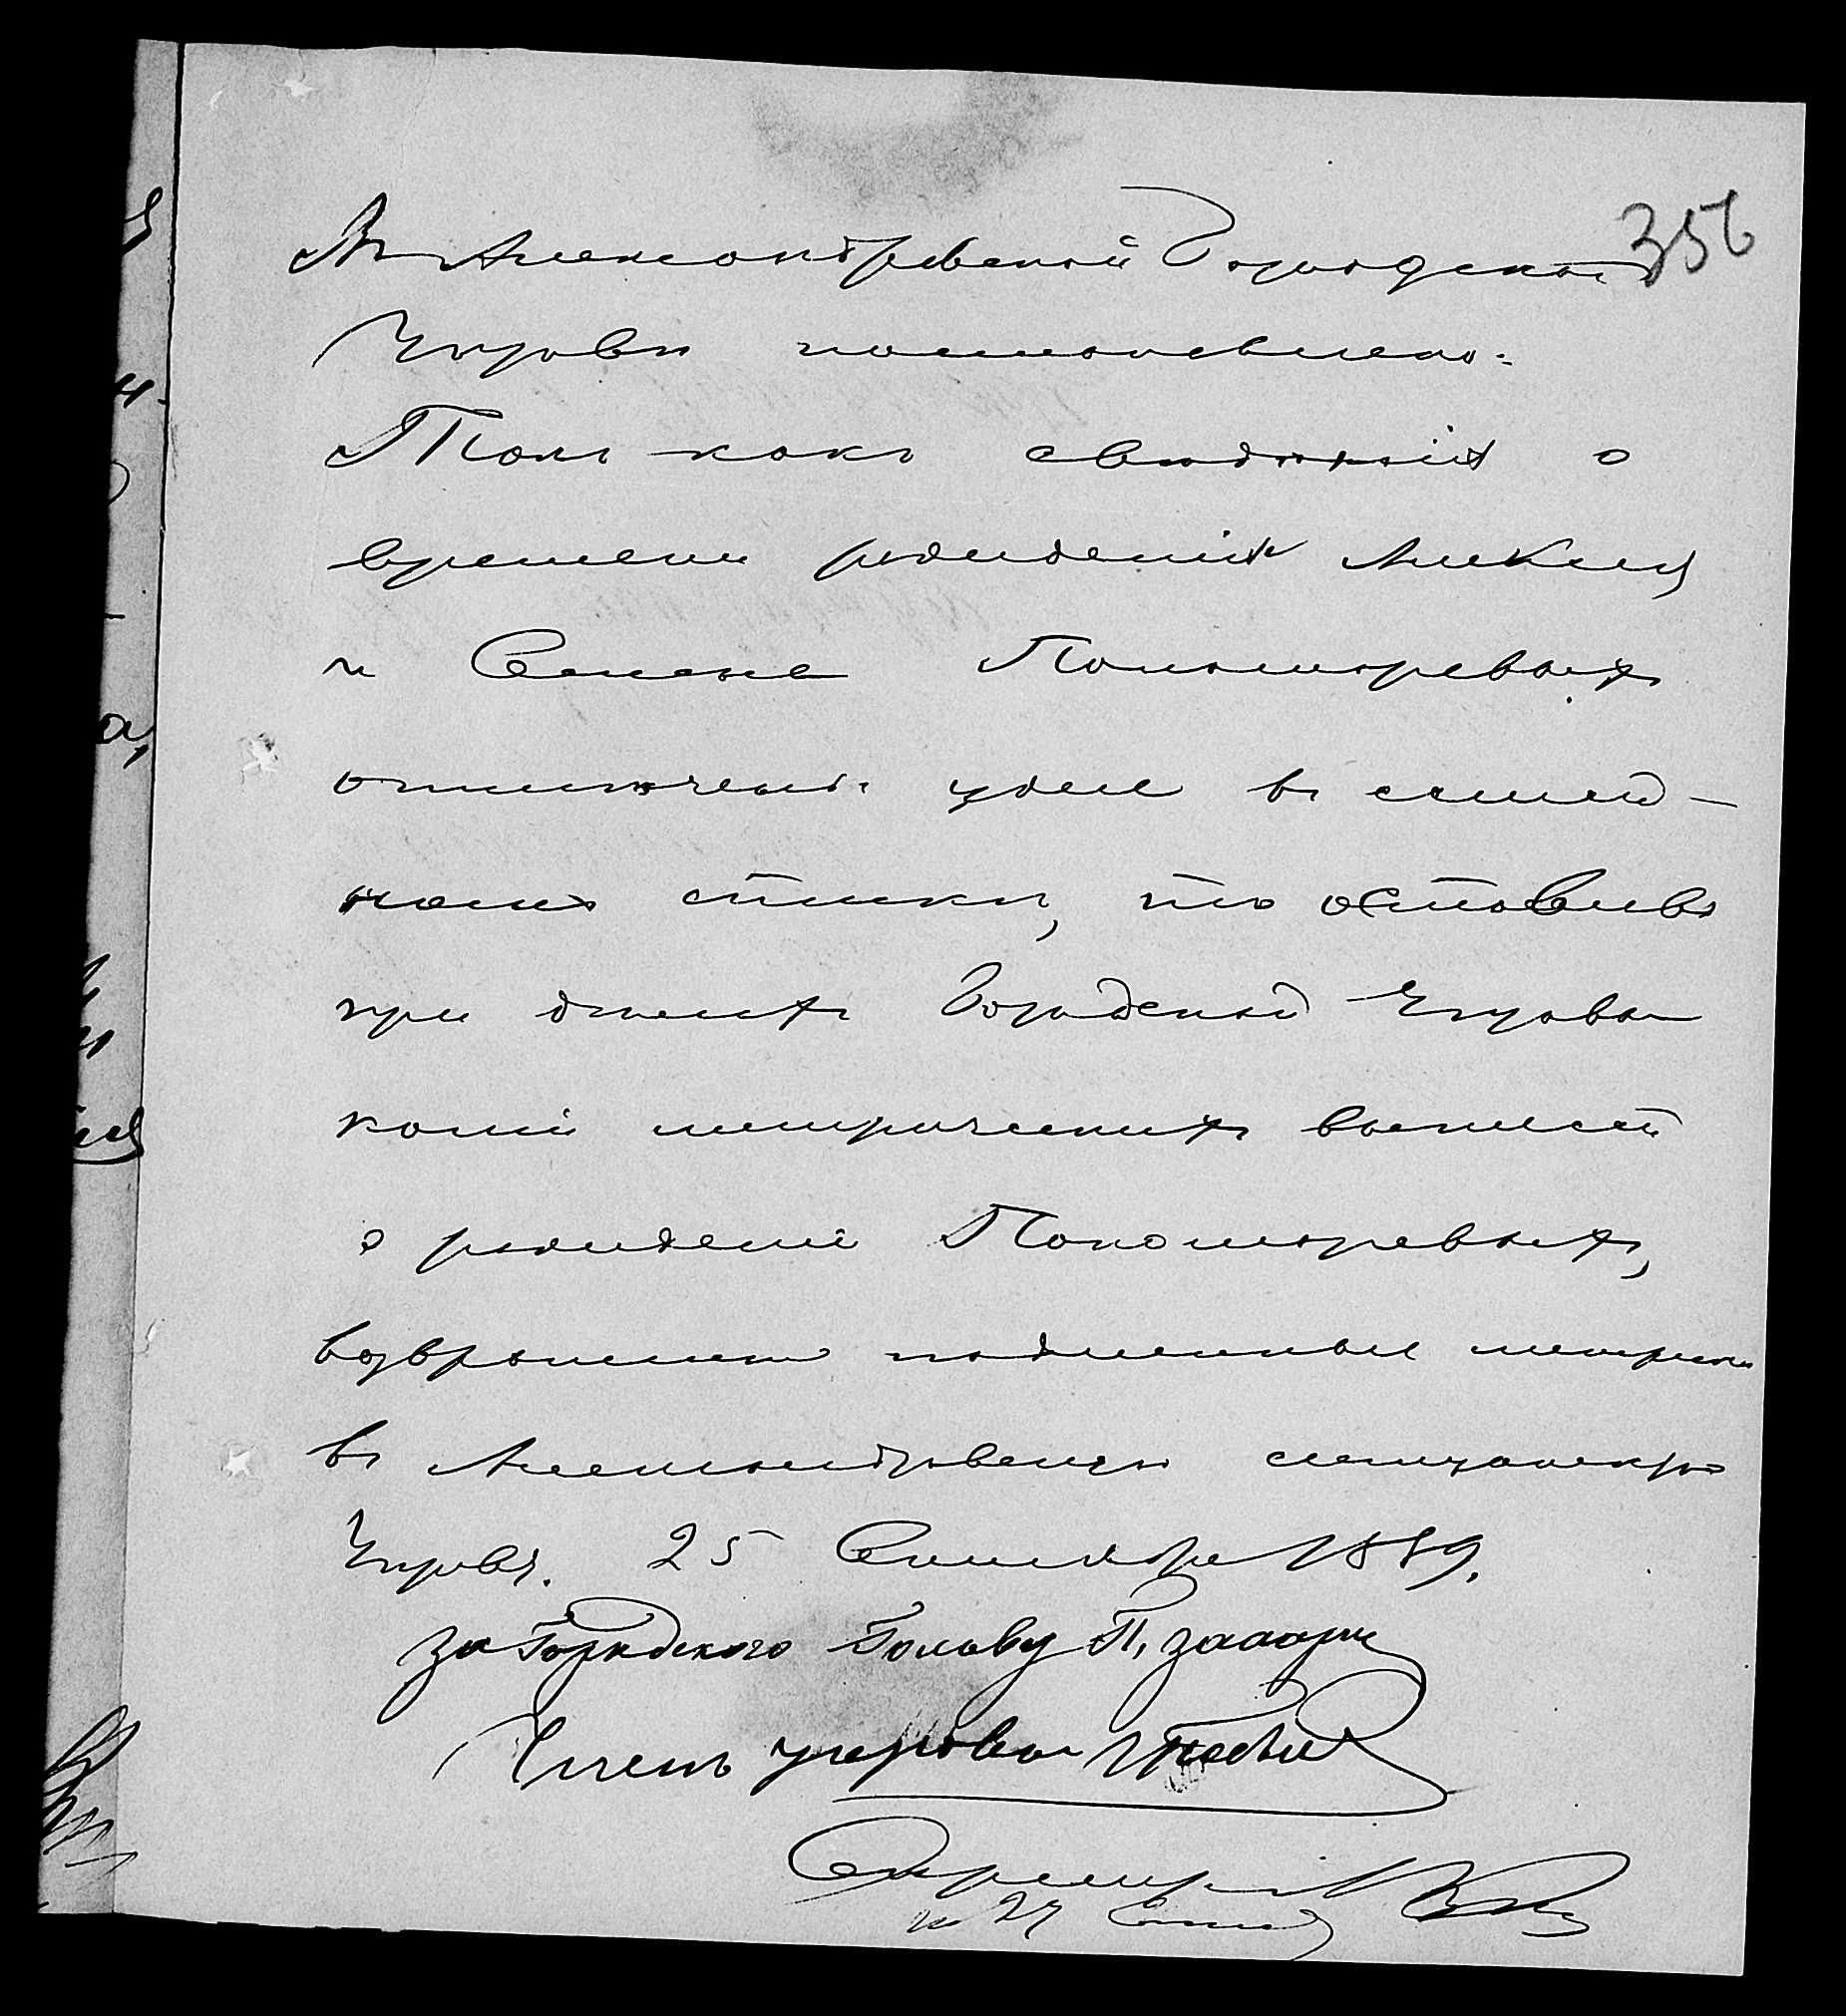 356
Въ Александровской Городской
Управѣ постановлено:
Такъ какъ свѣдѣнія о
времени рожденія Алексѣя
и Семена Пономаревыхъ
отмѣчены уже въ семей-
номъ спискѣ, то оставивъ
при дѣлахъ Городской Управы
копіи метрическихъ выписей
о рожденіи Пономаревыхъ,
возвратить подлинныя метрики
въ Александровскую мещанскую
Управу. 25 Сентября 1889.
За Городского Голову П.
Членъ управы
Секретарь
27 Сент